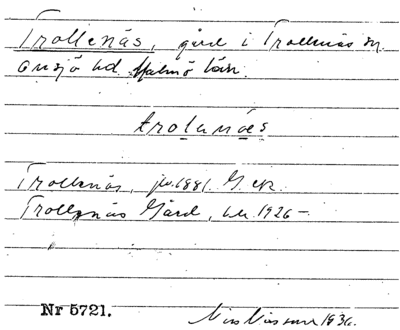 Trollenäs, gård i Trollenäs sn.
Onsjö hd. Malmö län.
trolanäs
Trollenäs, jvst. 1881. G. ek.
Trollenäs Gård, 1926 –
Nr 5721.
Nils Nilsson 1936.